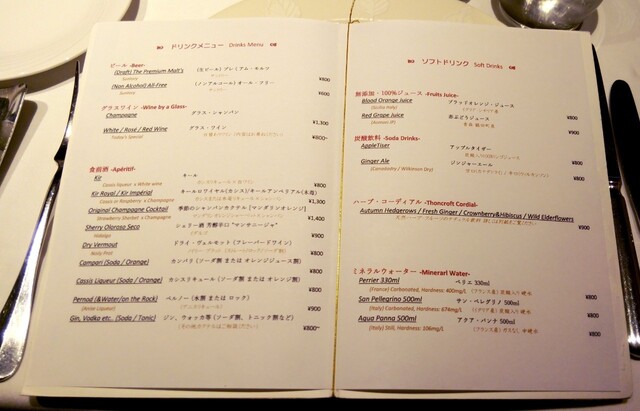 ドリンクメニュー Drinks Menu
ビール -Beer-
(Draft) The Premium Malt's (生ビール) プレミアム・モルツ ¥800
Suntory サントリー
(Non Alcohol) All-Free (ノンアルコール) オール・フリー
Suntory サントリー ¥600
グラスワイン -Wine by a Glass-
Champagne グラス・シャンパン ¥1,300
White / Rose / Red Wine グラス・ワイン ¥800~
Today's Special
食前酒 -Apéritif-
Kir キール ¥800
Cassis liqueur x White wine
Kir Royal / Kir Impérial キールロワイヤル(カシス)/キールアンペリアル(木苺)
Cassis or Raspberry x Champagne ¥1,300
Original Champagne Cocktail 季節のシャンパンカクテル [マンダリンオレンジ]
Strawberry Sherbet x Champagne ¥1,400
Sherry Oloroso Seco シェリー酒 芳醇辛口 "マンサニージャ"
Hidalgo ¥900
Dry Vermout ドライ・ヴェルモット (フレーバードワイン)
Noilly Prat ¥800
Campari (Soda / Orange) カンパリ (ソーダ割 または オレンジジュース割) ¥800
Cassis Liqueur (Soda / Orange) カシスリキュール (ソーダ割 または オレンジ割) ¥800
Pernod (&Water/on the Rock) ペルノー (水割 または ロック) ¥900
(Anise Liqueur) (アニスリキュール)
Gin, Vodka etc. (Soda / Tonic) ジン、ウォッカ等 (ソーダ割、トニック割など) ¥800~
ソフトドリンク Soft Drinks
無添加・100%ジュース -Fruits Juice-
Blood Orange Juice ブラッドオレンジ・ジュース ¥800
(Sicilia Italy)
Red Grape Juice 赤ぶどうジュース ¥900
炭酸飲料 -Soda Drinks-
AppleTiser アップルタイザー ¥800
Ginger Ale ジンジャーエール
(Canadadry / Wilkinson Dry) ¥800
ハーブ・コーディアル -Thorncroft Cordial-
Autumn Hedgerows / Fresh Ginger / Crownberry&Hibiscus / Wild Elderflowers ¥900
ミネラルウォーター -Minerarl Water-
Perrier 330ml ペリエ 330ml
(France) Carbonated, Hardness: 400mg/L (フランス産) 炭酸入り 硬水 ¥800
San Pellegrino 500ml サン・ペレグリノ 500ml
(Italy) Carbonated, Hardness: 674mg/L (イタリア産) 炭酸入り 硬水 ¥800
Aqua Panna 500ml アクア・パンナ 500ml
(Italy) Still, Hardness: 108mg/L ¥800